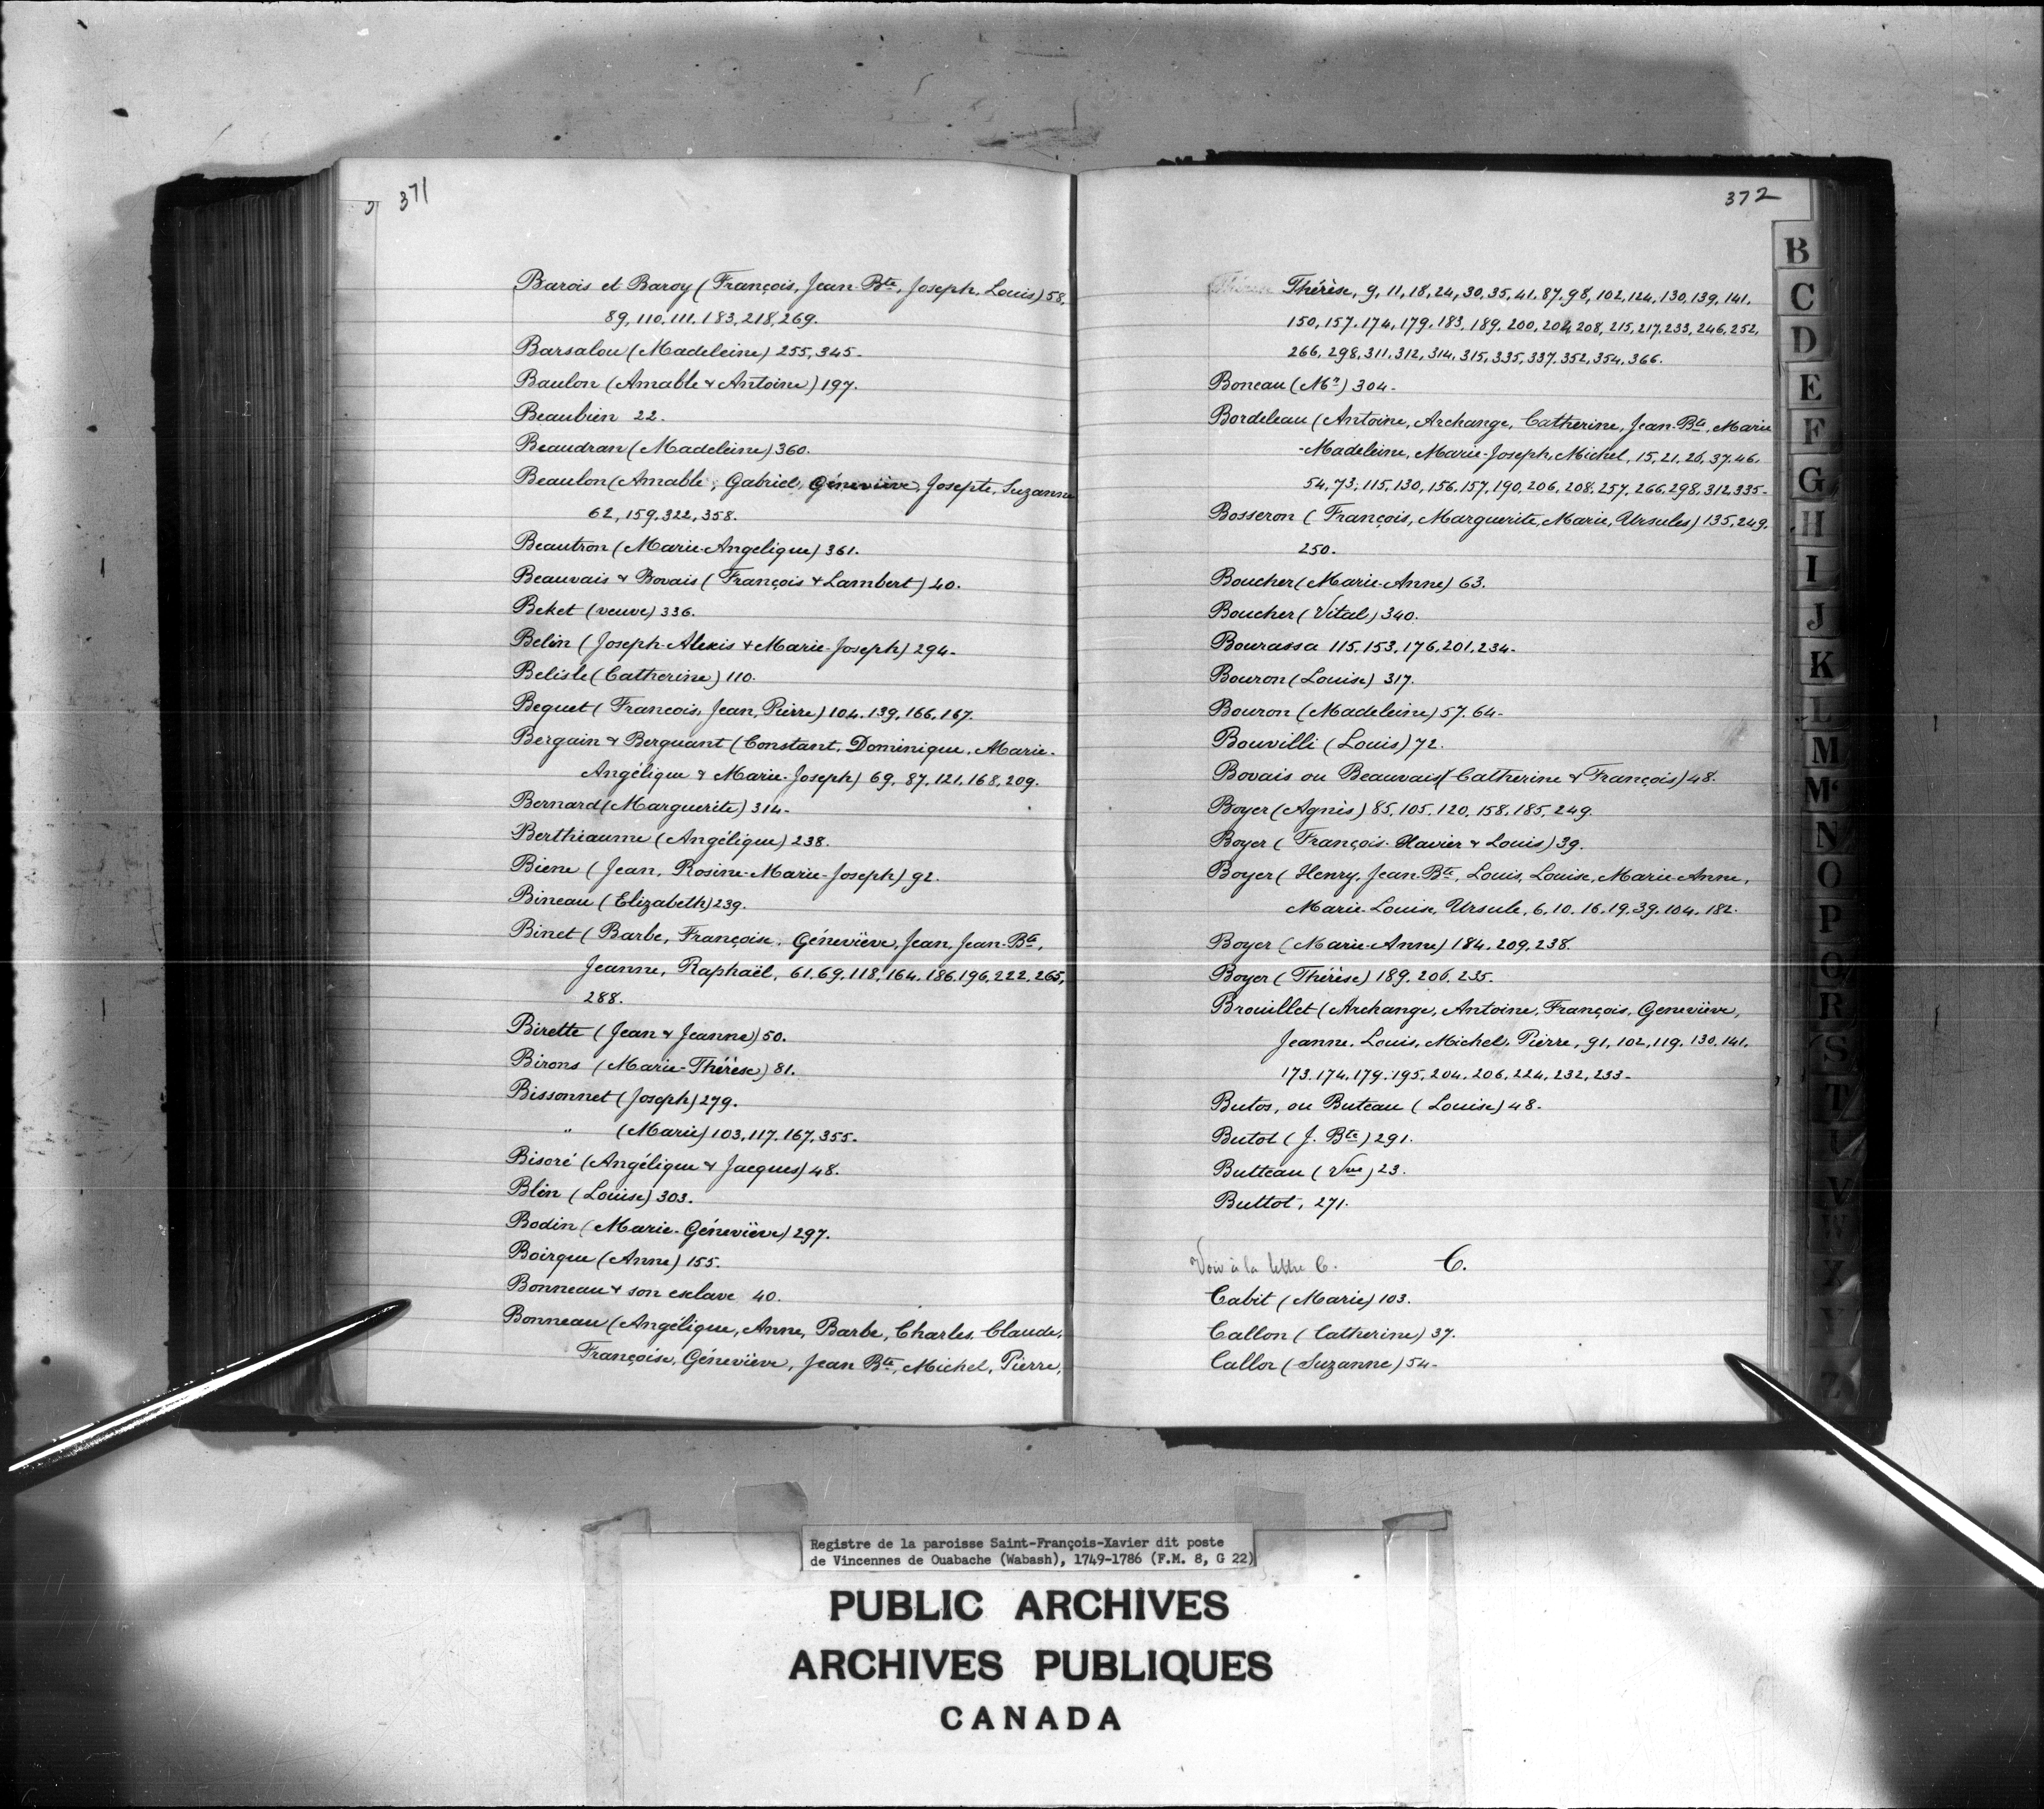 371
Barois et Baroy (François, Jean-Bte, Joseph, Louis) 58,
89, 110, 111, 183, 218, 269.
Barsalou (Madeleine) 255, 345.
Baulon (Amable & Antoine) 197.
Beaubien 22.
Beaudran (Madeleine) 360.
Beaulon (Amable, Gabriel, Géneviève, Josepte, Suzanne
62, 159, 322, 358.
Beautron (Marie-Angelique) 361.
Beauvais & Bovais (François & Lambert) 40.
Beket (veuve) 336.
Belin (Joseph-Alexis & Marie-Joseph) 294.
Belisle (Catherine) 110.
Bequet (Francois, Jean, Pierre) 104. 139, 166, 167.
Bergain & Berguant (Constant, Dominique, Marie-
Angélique & Marie-Joseph) 69, 87, 121, 168, 209.
Bernard (Marguerite) 314.
Berthiaume (Angélique) 238.
Biene (Jean, Rosine-Marie-Joseph) 92.
Bineau (Elizabeth) 239.
Binet (Barbe, Françoise, Géneviève, Jean, Jean-Bte,
Jeanne, Raphaël, 61, 69, 118, 164, 186, 196, 222, 265,
288.
Birette (Jean & Jeanne) 50.
Birons (Marie-Thérèse) 81.
Bissonnet (Joseph) 279.
" (Marie) 103, 117, 167, 355.
Bisoré (Angélique & Jacques) 48.
Blin (Louise) 303.
Bodin (Marie-Géneviève) 297.
Boirque (Anne) 155.
Bonneau & son esclave 40.
Bonneau (Angélique, Anne, Barbe, Charles, Claude,
Françoise, Géneviève, Jean Bte, Michel, Pierre,
372
Thérèse, 9, 11, 18, 24, 30, 35, 41, 87, 98, 102, 124, 130, 139, 141,
150, 157, 174, 179, 183, 189, 200, 204, 208, 215, 217, 233, 246, 252,
266, 298, 311, 312, 314, 315, 335, 337, 352, 354, 366.
Boneau (Mr) 304.
Bordeleau (Antoine, Archange, Catherine, Jean-Bte, Marie
-Madeleine, Marie-Joseph, Michel, 15, 21, 26, 37, 46,
54, 73, 115, 130, 156, 157, 190, 206, 208, 257, 266, 298, 312, 335.
Bosseron (François, Marguerite, Marie, Ursules) 135, 249,
250.
Boucher (Marie-Anne) 63.
Boucher (Vital) 340.
Bourassa 115, 153, 176, 201, 234.
Bouron (Louise) 317.
Bouron (Madeleine) 57, 64.
Bouvilli (Louis) 72.
Bovais ou Beauvais (Catherine & François) 48.
Boyer (Agnès) 85, 105, 120, 158, 185, 249.
Boyer (François-Xavier & Louis) 39.
Boyer (Henry, Jean-Bte, Louis, Louise, Marie-Anne,
Marie-Louise, Ursule, 6, 10, 16, 19, 39, 104, 182.
Boyer (Marie-Anne) 184, 209, 238.
Boyer (Thérèse) 189, 206, 235.
Brouillet (Archange, Antoine, François, Geneviève,
Jeanne, Louis, Michel, Pierre, 91, 102, 119, 130, 141,
173, 174, 179, 195, 204, 206, 224, 232, 233.
Butos, ou Buteau (Louise) 48.
Butot (J. Bte) 291.
Butteau (Vve) 23.
Buttot, 271.
Voir à la lettre C. C.
Cabit (Marie) 103.
Callon (Catherine) 37.
Callor (Suzanne) 54.
B
C
D
E
F
G
H
I
J
K
L
M
Mc
N
O
P
Q
R
S
T
V
W
X
Y
Z
Registre de la paroisse Saint-François-Xavier dit poste
de Vincennes de Ouabache (Wabash), 1749-1786 (F.M. 8, G 22)
PUBLIC ARCHIVES
ARCHIVES PUBLIQUES
CANADA